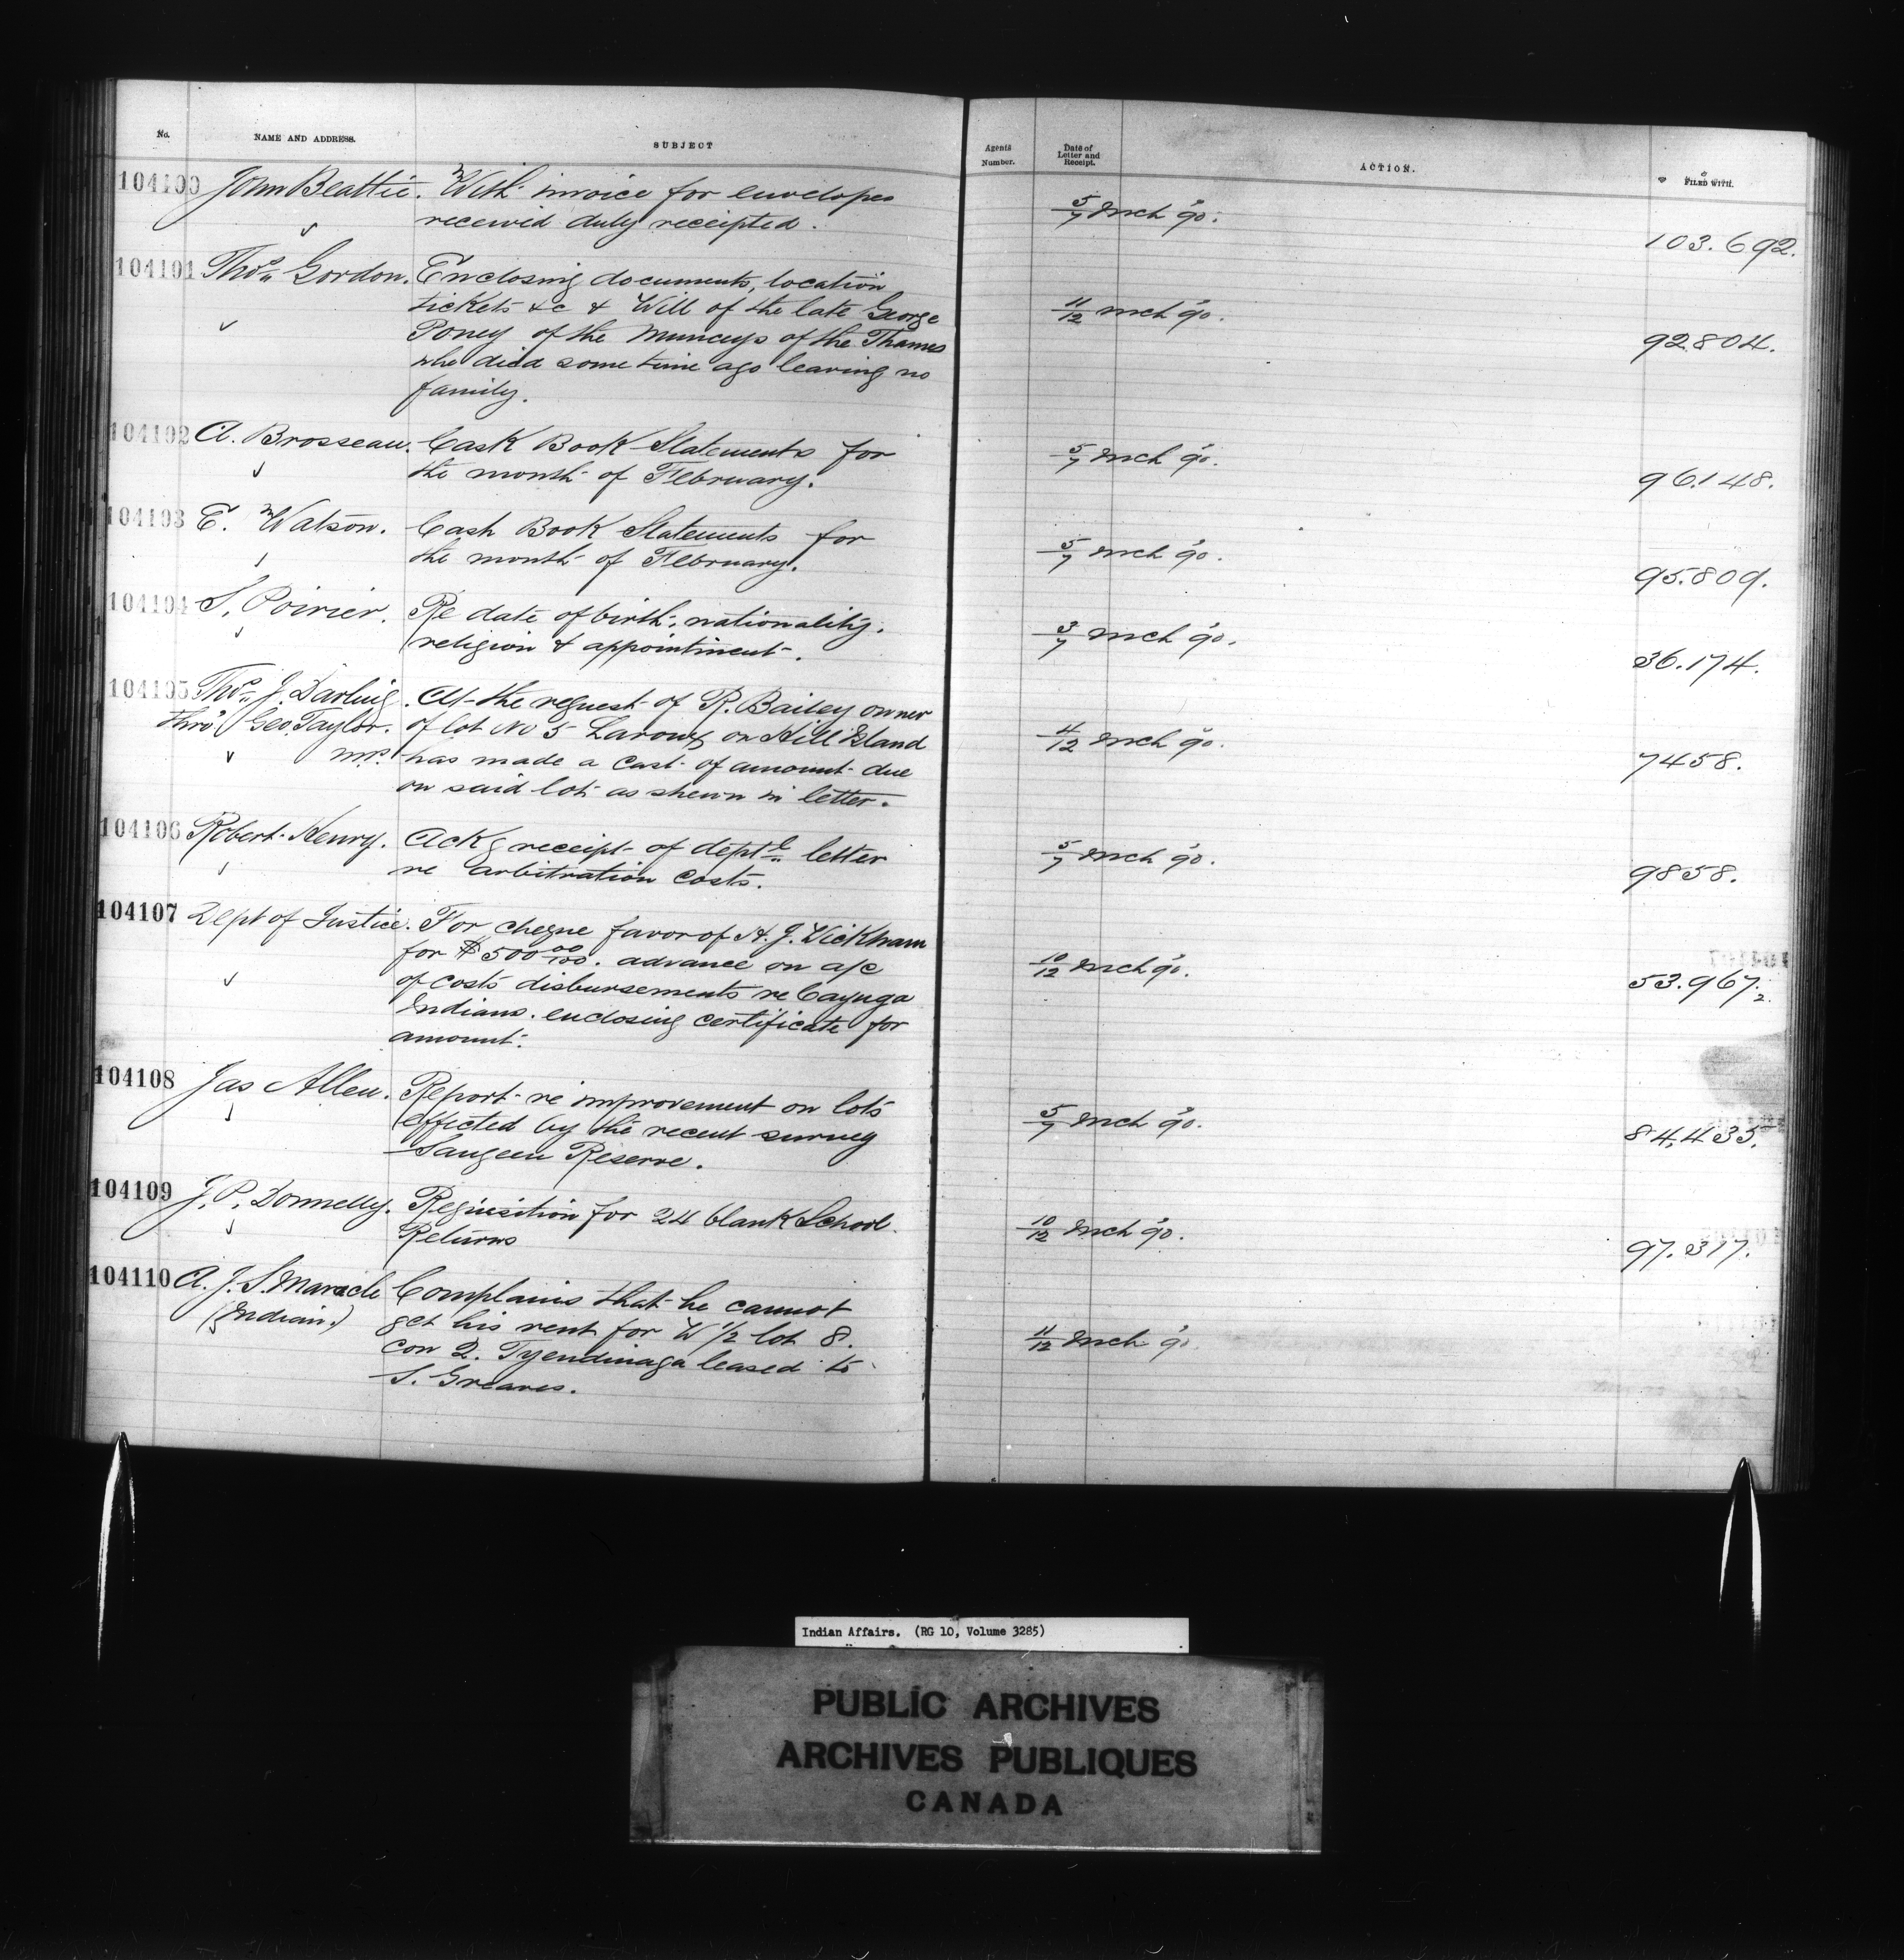 No.
NAME AND ADDRESS.
SUBJECT
Agents
Number.
Date of
Letter and
Receipt.
ACTION.
FILED WITH.
104100 John Beattie. With invoice for envelopes
received duly receipted.
5/7 Mch 90.
103.692.
104101 Thos. Gordon. Enclosing documents, location
tickets &c & Will of the late George
Poney of the Munceys of the Thames
who died some time ago leaving no
family.
11/12 Mch 90.
92.804.
104102 A. Brosseau. Cash Book Statements for
the month of February.
5/7 Mch 90.
96.148.
104103 E. Watson. Cash Book Statements for
the month of February.
5/7 Mch 90.
95.809.
104104 S. Poirier. Re date of birth, nationality,
religion & appointment.
3/7 Mch 90.
36.174.
104105 Thos. J. Darling. At the request of R. Bailey owner
thro' Geo. Taylor. of lot No 5 on Hill Island
M.P. has made a cast of amount due
on said lot as shewn in letter.
4/12 Mch 90.
7458.
104106 Robert Henry. Ackg receipt of deptl letter
re arbitration costs.
5/7 Mch 90.
9858.
104107 Dept of Justice. For cheque favor of H. J. Wickham
for $500 00/100. advance on a/c
of costs disbursements re Cayuga
Indians. enclosing certificate for
amount.
10/12 Mch 90.
53.967.2.
104108 Jas Allen. Report re improvement on lots
effected by the recent survey
Saugeen Reserve.
5/7 Mch 90.
84,435.
104109 J. P. Donnelly. Requisition for 24 blank School
Returns
10/12 Mch 90.
97.317.
104110 A. J. S. Maracle Complains that he cannot
(Indian.) get his rent for W 1/2 lot 8.
con 2. Tyendinaga leased to
S. Greaves.
11/12 Mch 90.
Indian Affairs. (RG 10, Volume 3285)
PUBLIC ARCHIVES
ARCHIVES PUBLIQUES
CANADA